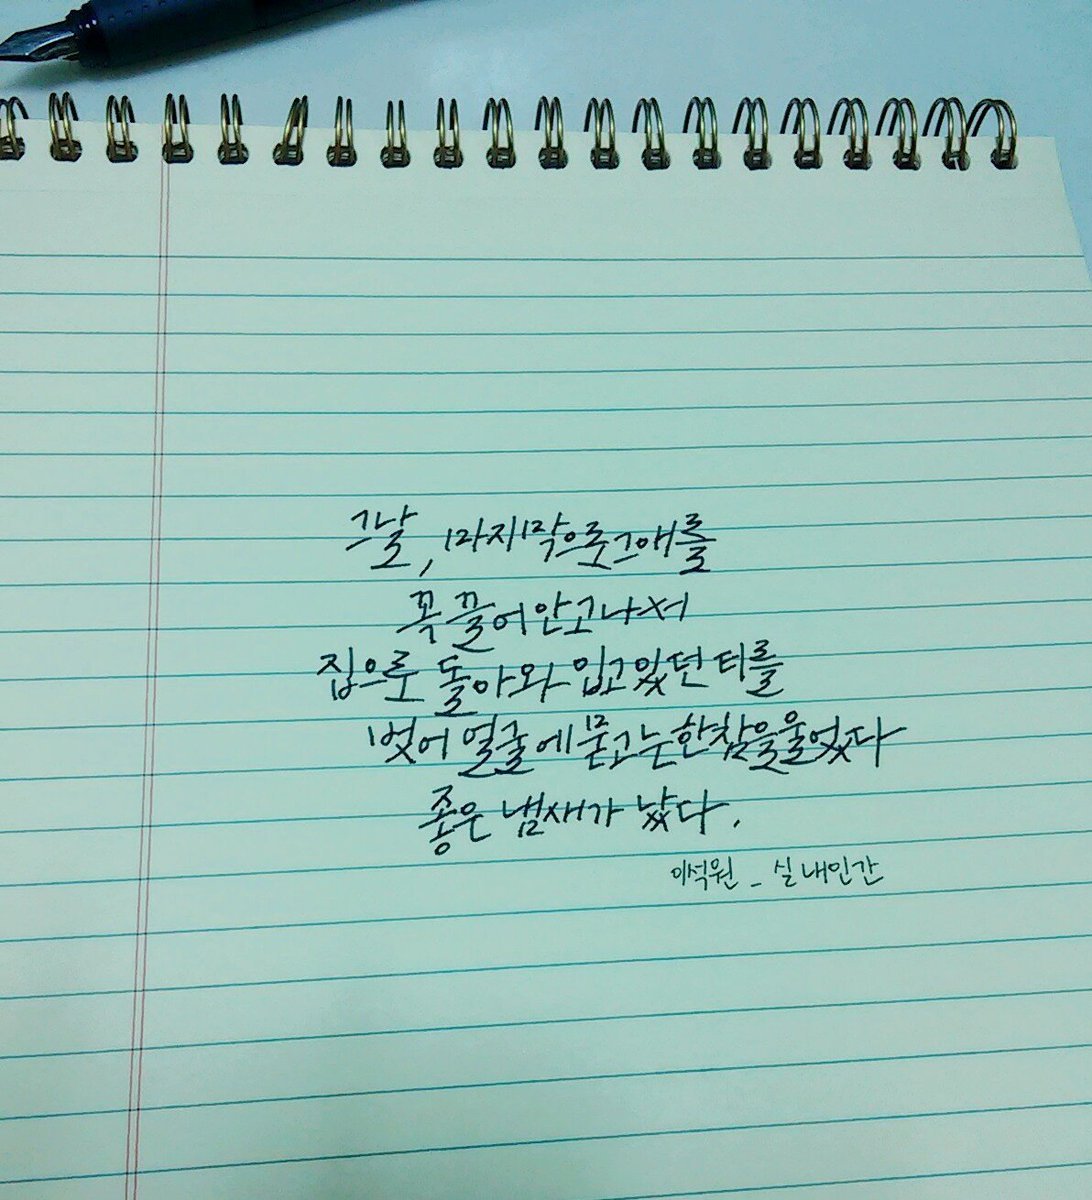 그날, 마지막으로 그애를
꼭 끌어안고나서
집으로 돌아와 입고있던 티를
벗어 얼굴에 묻고는 한참을 울었다
좋은 냄새가 났다.
이석원 - 실내인간